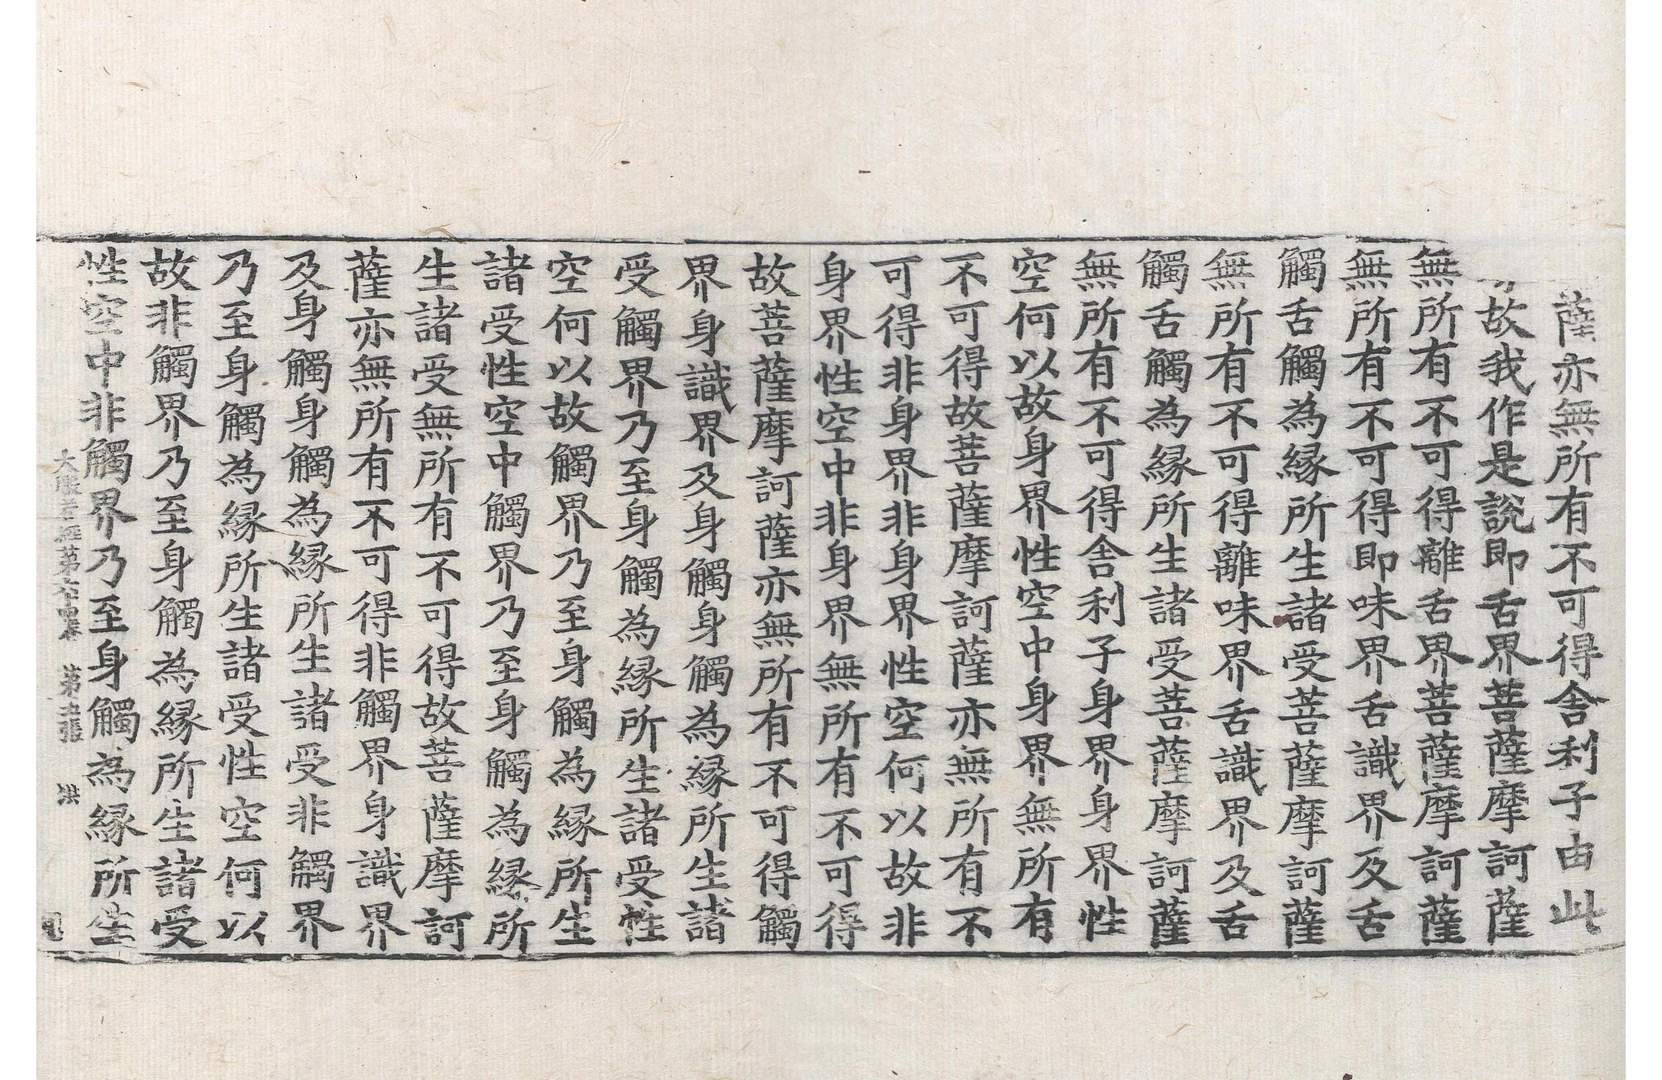 薩亦無所有不可得舍利子由此
故我作是說即舌界菩薩摩訶薩
無所有不可得離舌界菩薩摩訶薩
無所有不可得即味界舌識界及舌
觸舌觸為緣所生諸受菩薩摩訶薩
無所有不可得離味界舌識界及舌
觸舌觸為緣所生諸受菩薩摩訶薩
無所有不可得舍利子身界身界性
空何以故身界性空中身界無所有
不可得故菩薩摩訶薩亦無所有不
可得非身界非身界性空何以故非
身界性空中非身界無所有不可得
故菩薩摩訶薩亦無所有不可得觸
界身識界及身觸身觸為緣所生諸
受觸界乃至身觸為緣所生諸受性
空何以故觸界乃至身觸為緣所生
諸受性空中觸界乃至身觸為緣所
生諸受無所有不可得故菩薩摩訶
薩亦無所有不可得非觸界身識界
及身觸身觸為緣所生諸受非觸界
乃至身觸為緣所生諸受性空何以
故非觸界乃至身觸為緣所生諸受
性空中非觸界乃至身觸為緣所生
大般若經第六 卷 第五張 洪